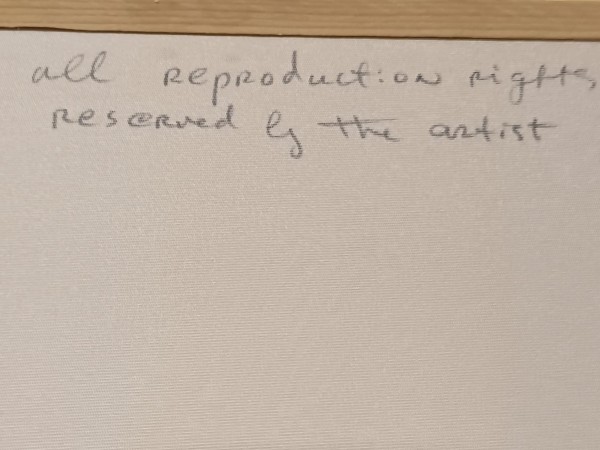 all reproduction rights
reserved by the artist